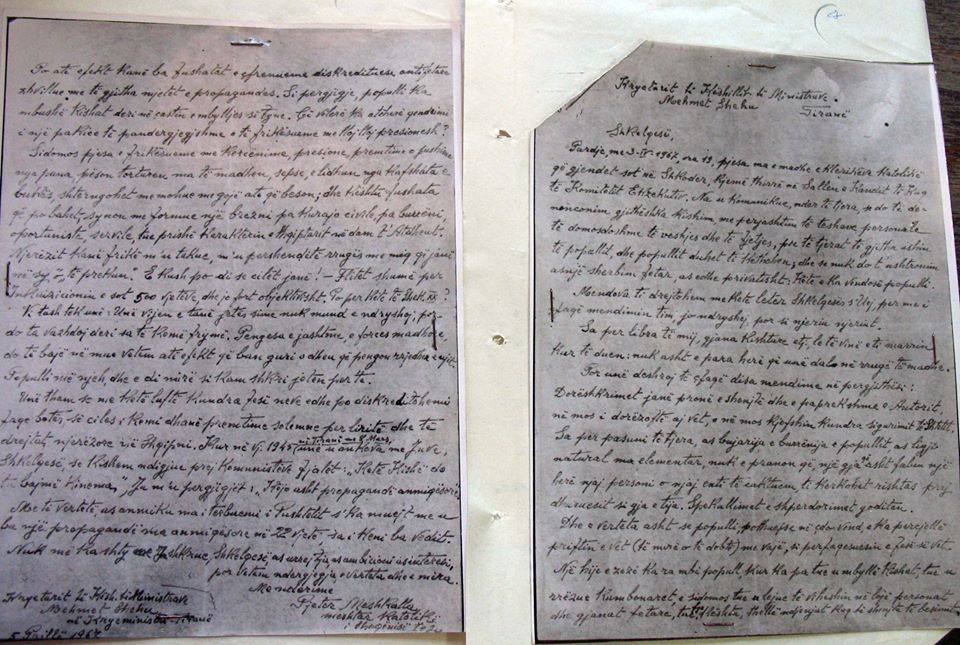 Po atë efekt kanë ba fushatat e çfrenueme diskredituese antifetare
zhvillue me të gjitha mjetet e propagandës. Si përgjigje, populli ka
mbushë Kishat deri në çastin e mbylljes së tyne. Çë vlerë ka atëherë qendrimi
i një pakice të pandërgjegjshme e të frikësueme me lloj lloj presionesh?
Sidomos pjesa e frikësueme me kërcënime, presione, premtime e pushime
nga puna pëson torturën ma të madhen, sepse, e lidhun nga kafshata e
bukës, shtërngohet me mohue me gojë atë që beson; dhe kështu fushata
që po bahet, synon me formue një brezni pa kurajo civile, pa burrëni,
oportuniste, servile, tue prishë karakterin e Shqiptarit në dam t'Atdheut.
Njerëzit kanë frikë m'u takue, m'u përshëndetë rrugës me mue që janë
në sy „të prekun". E kush po di se cilët janë! – Flitet shumë për
Inkuizicionin e sot 500 vjetëve, dhe jo fort objektivisht. Po për këtë të Shek XX?
K'tash tek unë: Unë vijën e tanë jetës sime nuk mund e ndryshoj, por
do ta vazhdoj deri sa të kemë frymë. Pengesa e jashtme, e forcës madhore
do të bajë në mue vetëm atë efekt që ban guri o dheu që pengon rrjedhën e ujit.
Populli më njeh, dhe e di mirë si kam shkri jetën për te.
Unë tham se me këtë luftë kundra fesë neve edhe po diskreditohemi
faqe botës, së cilës i kemi dhanë premtime solemne për liritë dhe të
drejtat njerëzore në Shqipni. Kur në vj. 1945 në Tiranë me 8 Mars, unë u ankova me Juve,
Shkelqesë, se kishem ndigjue prej komunistëve fjalët: „Këtë Kishë do
t'a bajmë Kinema", Ju m'u përgjigjët: „Kjo asht propagandë anmiqësore".
Me të vërtetë as anmiku ma i tërbuemi i Pushtetit s'ka muejt me u
ba një propagandë ma anmiqësore në 22 vjetë, sa i keni ba vedit.
Nuk më ka shty me Ju shkrue, Shkelqesë, as urrejtja as ambicioni as interesi,
por vetëm ndërgjegja e vërteta dhe e mira.
Me nderime
Pjetër Meshkalla
meshtar katolik
i Shoqënisë Jezu
Kryetarit të Kësh. të Ministrave
Mehmet Shehu
në Kryeministri – Tiranë
5 Prill 1967

Kryetarit të Këshillit të Ministrave.
Mehmet Shehu
Tiranë
Shkelqesë,
Pardje, me 3-IV-1967, ora 19, pjesa ma e madhe e klerikëve Katolikë
që gjenden sot në Shkodër, kjemë thirrë në Sallën e Kandit të Kuq
të Komitetit Ekzekutiv. Na u komunikue, ndër të tjera, se do të de-
nonconim gjithëshka kishim me përjashtim të teshave personale
të domosdoshme të veshjes dhe të fjetjes, pse të tjerat të gjitha ishin
të popullit, dhe popullit duhet të ktheheshin; dhe se nuk do t'ushtronim
asnjë shërbim fetar, as edhe privatisht: këtë e ka vendosë populli.
Mendova të drejtohem me këtë letër Shkelqesës s'Uej, për me i
çfaqë mendimin tim, jo ndryshej, por si njeriu njeriut.
Sa për libra të mij, gjana kishtare etj, le të vinë e të marrin
kur të duen: nuk asht e para herë që unë dalë në rrugë të madhe.
Por unë dëshroj të çfaqë disa mendime në përgjithësi:
Dorëshkrimet janë pronë e shenjtë dhe e paprekshme e Autorit,
në mos i dorëzoftë aj vet, o në mos kjofshin kundra sigurimit të Shtetit.
Sa për pasuni të tjera, as bujarija e burrënija e popullit as ligji
natural ma elementar, nuk e pranon që, një gja që asht falun një
herë njaj personi o njaj enti të caktuem, të kërkohet rishtas prej
dhuruesit si gja e tija. Spekullimet e shpërdorimet goditen.
Dhe e vërteta asht se populli pothuejse në çdo vend e ka përcjellë
priftin e vet (të mirë o të dobtë) me vaje, si përfaqësuesin e fesë së vet.
Një hije e zezë ka ra mbi popull, kur ka pa tue u mbyllë Kishat, tue u
rrëzue kumbonaret e sidomos tue u lejue të vihëshin në lojë personat
dhe gjanat fetare, tue i theshtë, thellë ndjenjat kaq të shenjta të besimit